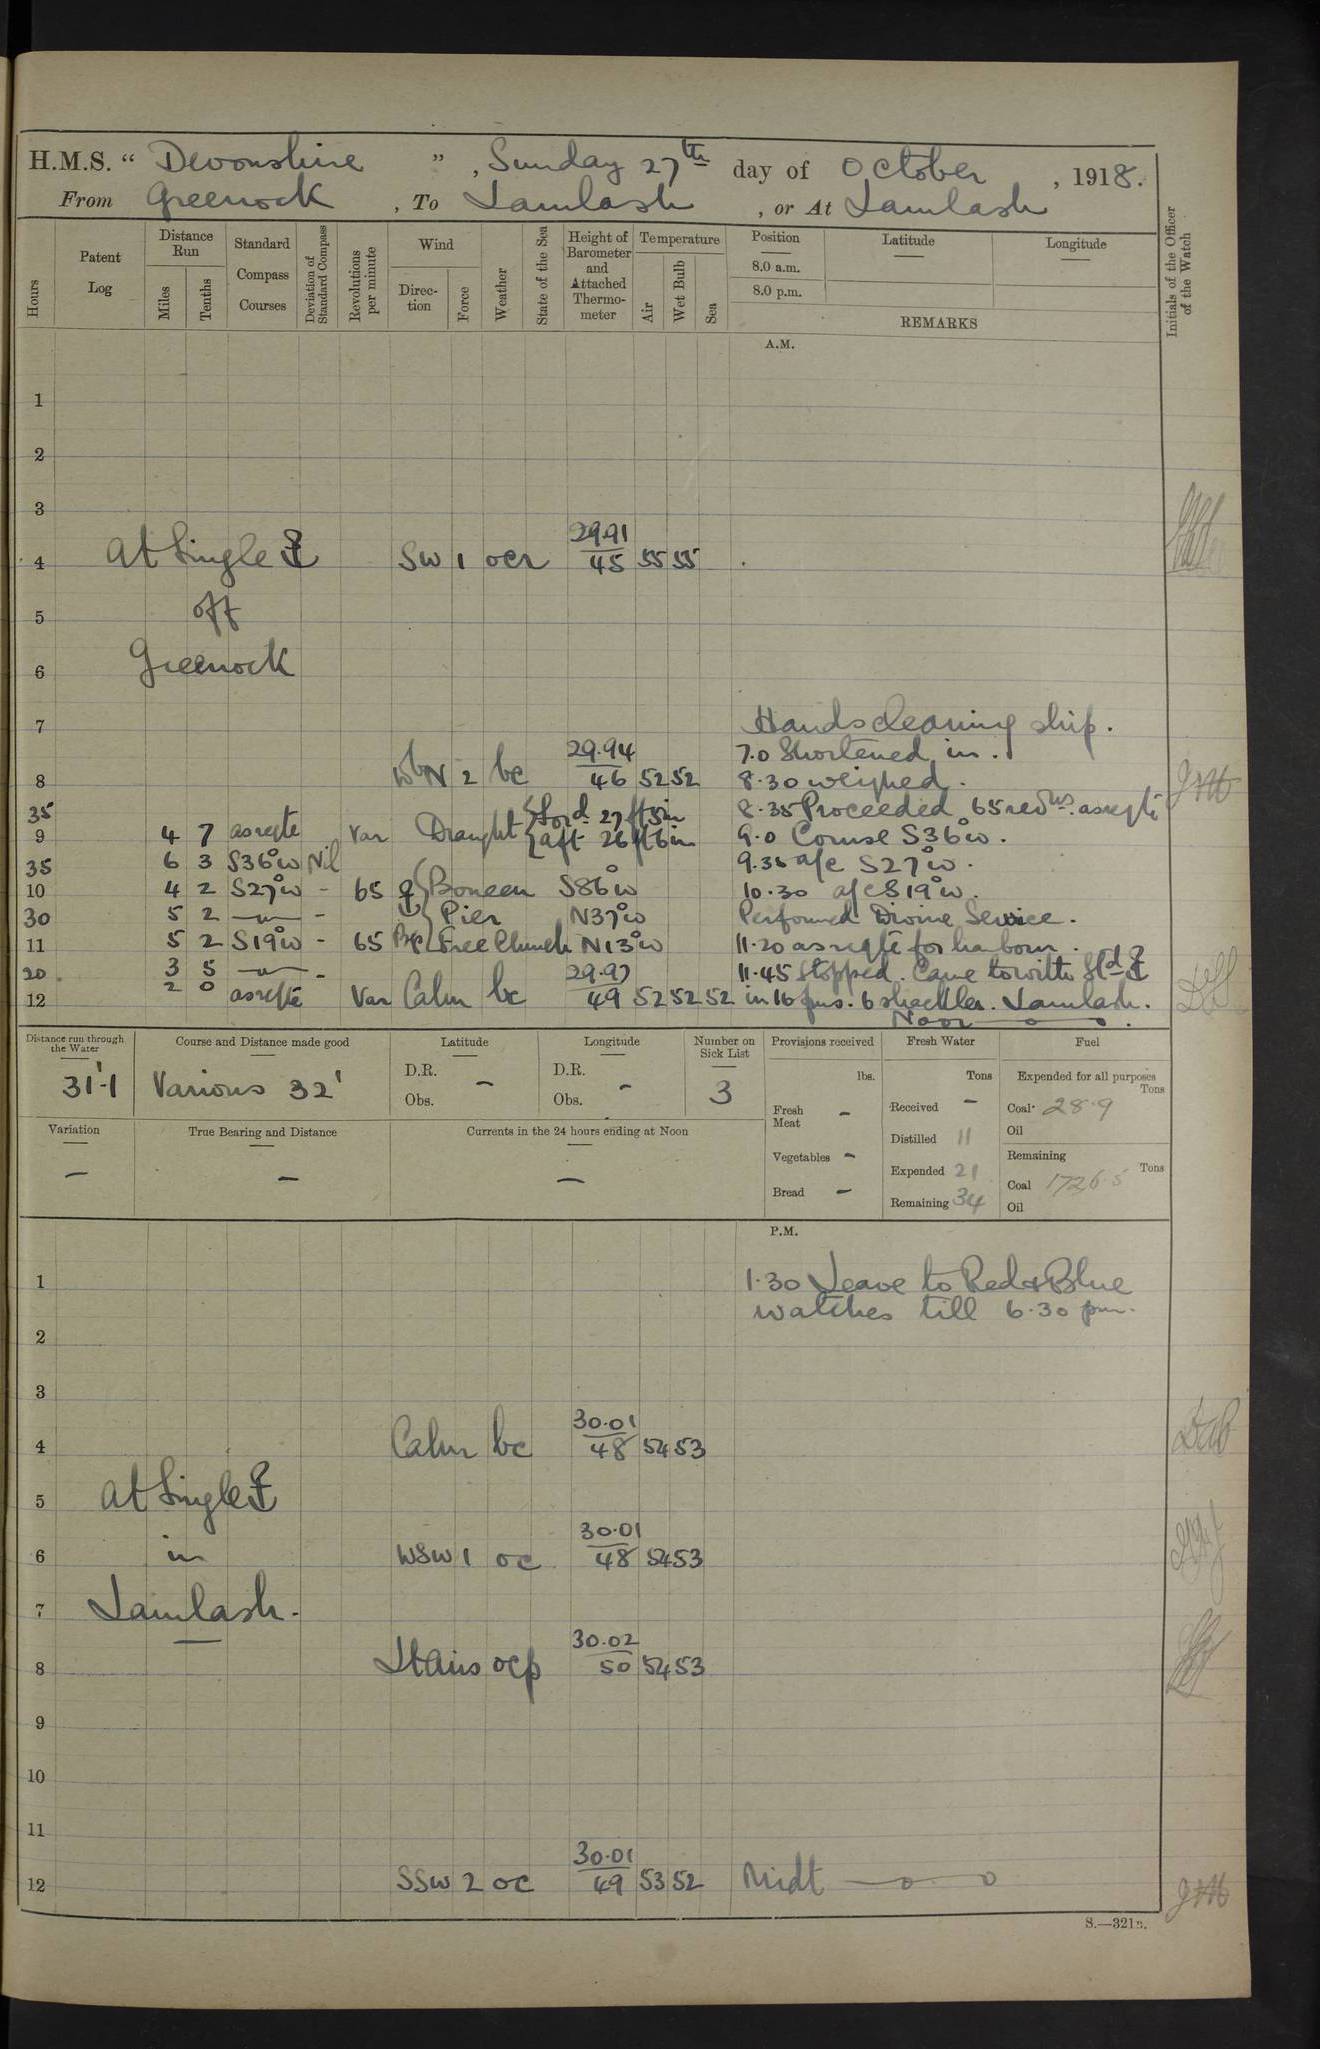 H.M.S. " Devonshire " , Sunday 27th day of October , 1918.
From Greenock , To Lamlash , or At Lamlash
Hours
Patent Log
Distance Run
Miles
Tenths
Standard Compass Courses
Deviation of Standard Compass
Revolutions per minute
Wind
Direction
Force
Weather
State of the Sea
Height of Barometer and Attached Thermometer
Temperature
Air
Wet Bulb
Sea
Position
8.0 a.m.
8.0 p.m.
Latitude
Longitude
REMARKS
Initials of the Officer of the Watch
A.M.
1
2
3
29.91
4 At Single SW 1 ocr 45 55 55
5 off
6 Greenock
7 Hands cleaning ship.
29.94 7.0 Shortened in.
8 WbN 2 bc 46 52 52 8.30 weighed.
35 Draught Ford 27 ft 5 in 8.35 Proceeded 65 revns. as reqte
9 4 7 as reqte Var aft 26 ft 6 in 9.0 Course S36°W.
35 6 3 S36°W Nil 9.35 a/c S27°W.
10 4 2 S27°W - 65 S86°W 10.30 a/c S19°W.
30 5 2 - Pier N37°W Performed Divine Service.
11 5 2 S19°W - 65 Free Church N13°W 11.20 as reqte for harbour.
20 3 5 - 29.97 11.45 Stopped. Came to with
12 2 0 as reqte Var Calm bc 49 52 52 52 in 16 fms. 6 shackles. Lamlash.
Noon
Distance run through the Water
31'.1
Course and Distance made good
Various 32'
Latitude
D.R. -
Obs.
Longitude
D.R. -
Obs.
Number on Sick List
3
Provisions received
lbs.
Fresh Meat -
Vegetables -
Bread -
Fresh Water
Tons
Received -
Distilled 11
Expended 21
Remaining 34
Fuel
Expended for all purposes
Tons
Coal 28.9
Oil
Remaining
Tons
Coal 1726.5
Oil
Variation
-
True Bearing and Distance
-
Currents in the 24 hours ending at Noon
-
P.M.
1 1.30 Leave to Red & Blue
watches till 6.30 pm.
2
3
30.01
4 Calm bc 48 54 53
5 At Single
30.01
6 in WSW 1 oc 48 54 53
7 Lamlash.
30.02
8 Lt airs ocp 50 54 53
9
10
11
30.01
12 SSW 2 oc 49 53 52 Midt
S.—321B.